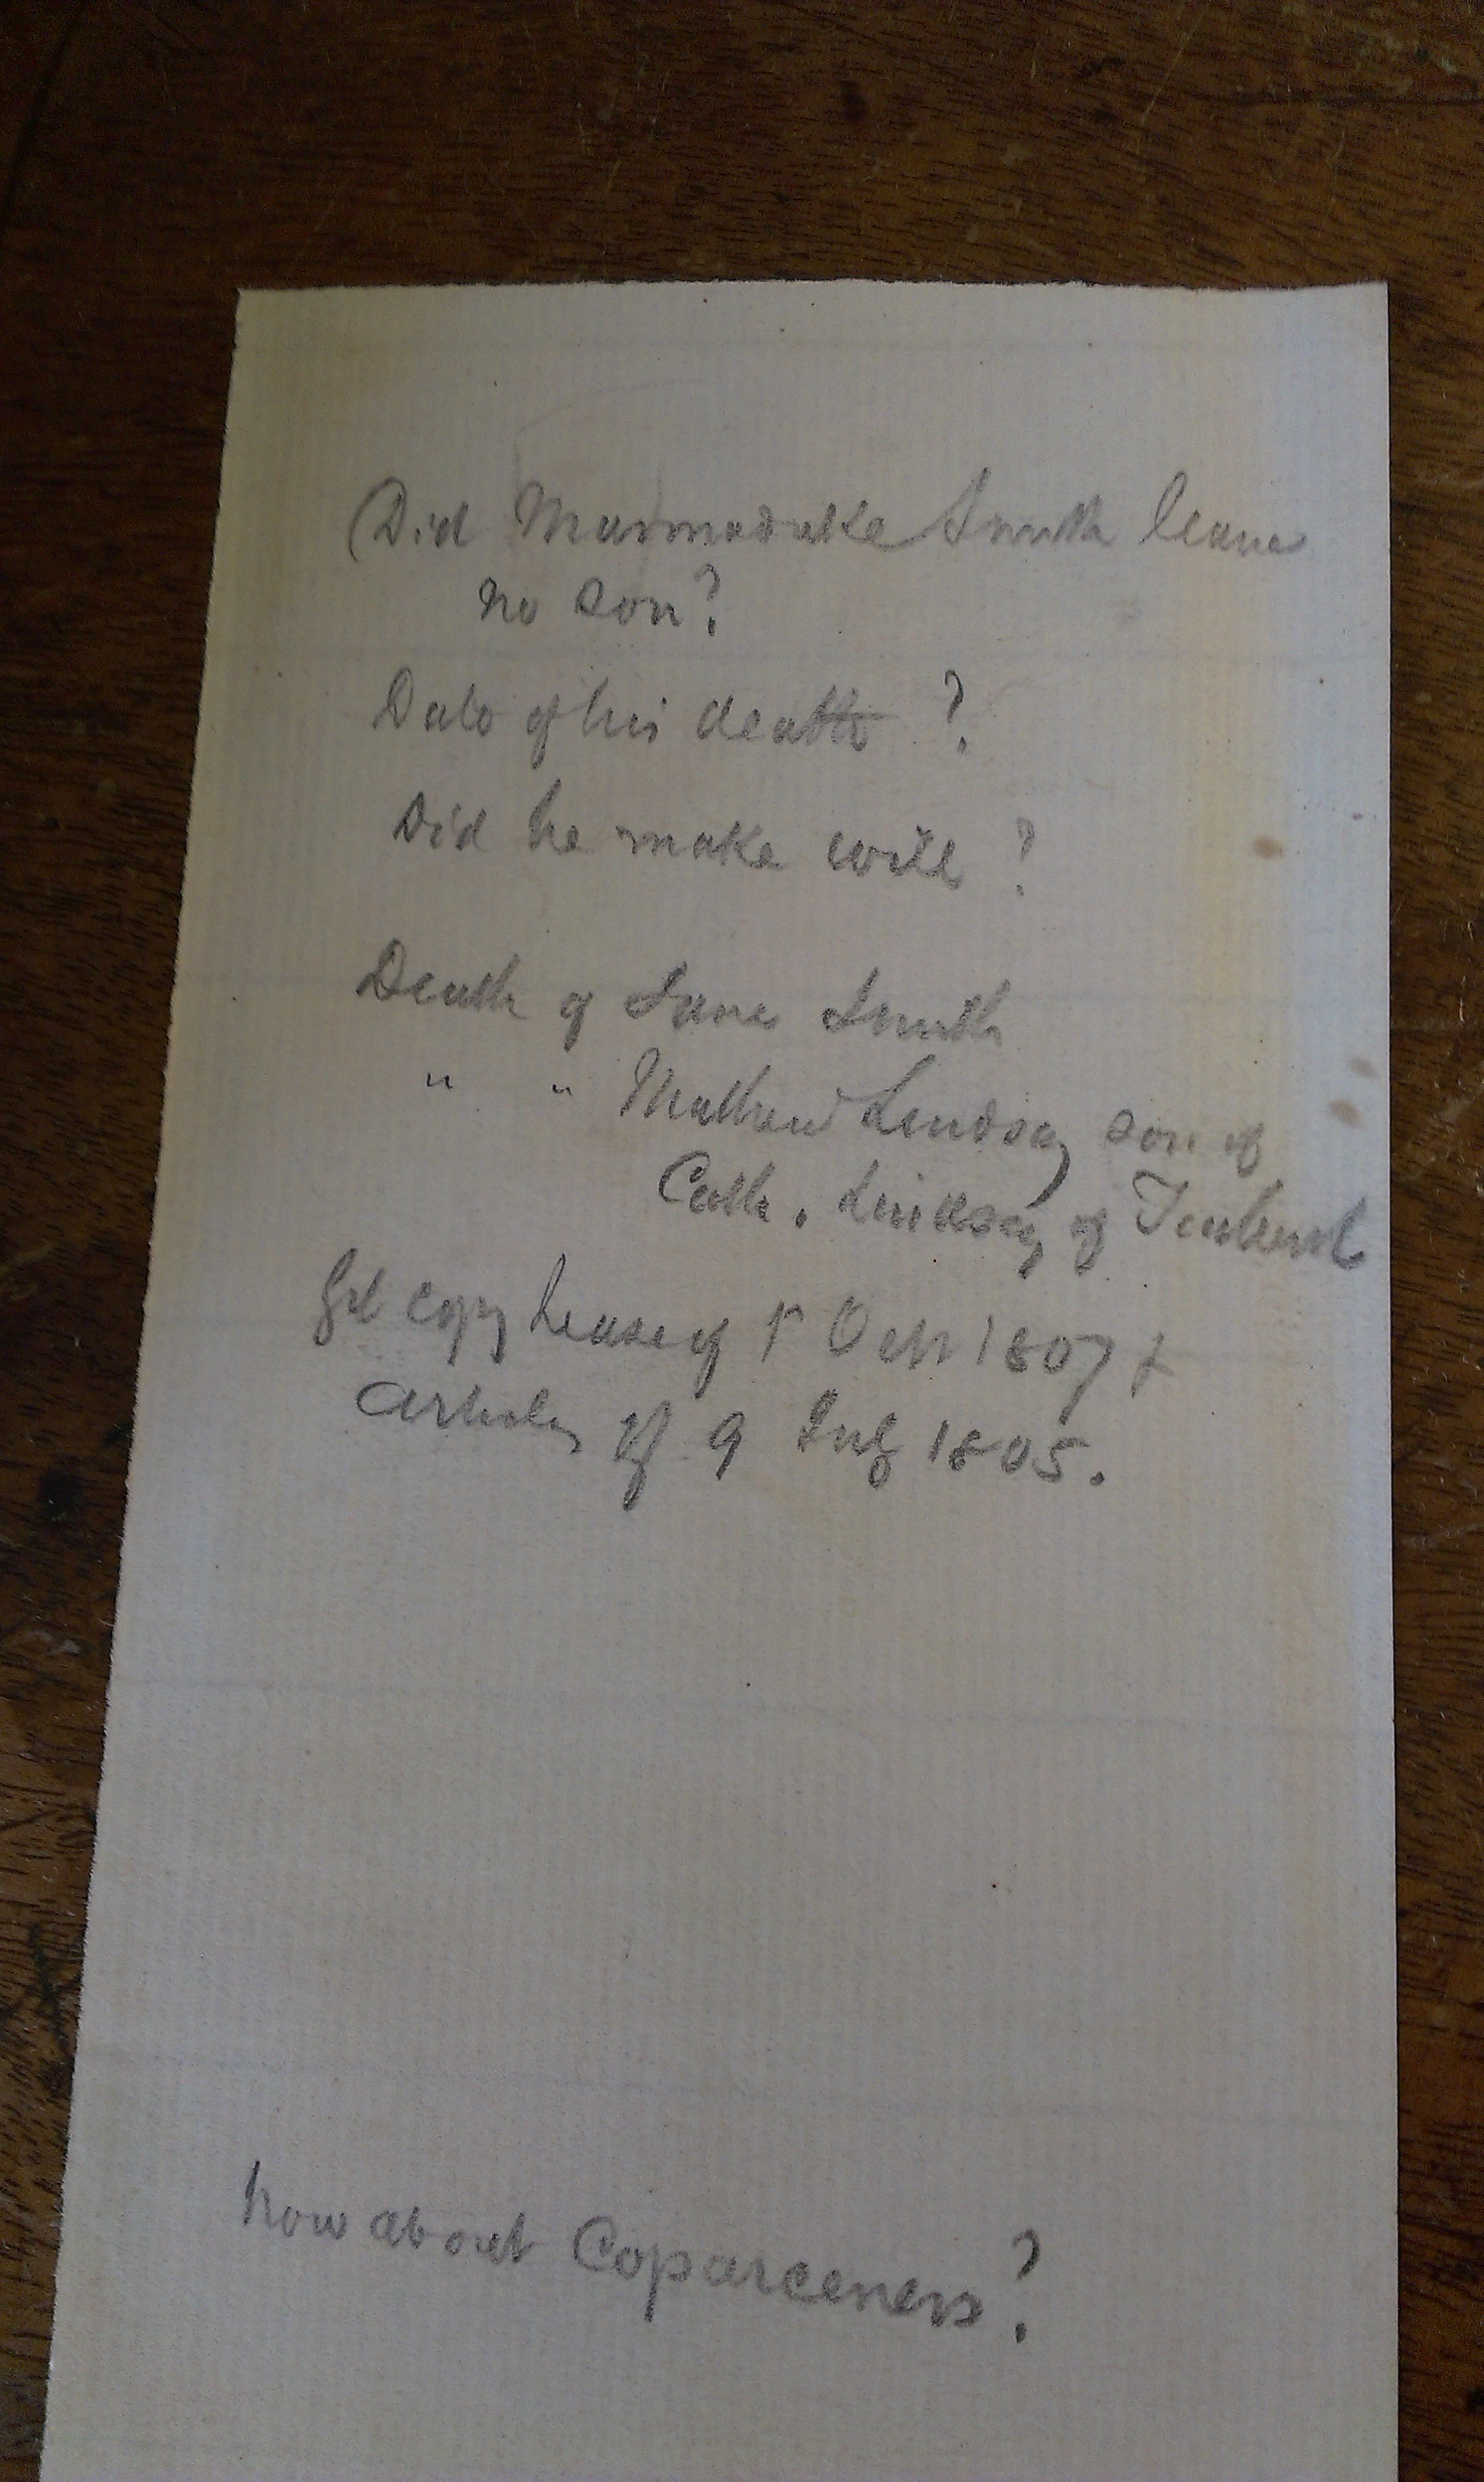 Did Marmaduke Smith leave
no son?
Date of his death ?
Did he make will ?
Death of Jane Smith
" " Mathew Lindsay son of
Cath. Lindsay of
Get copy lease of 1st Octr 1807 &
Articles of 9 July 1805.
how about Coparceners?